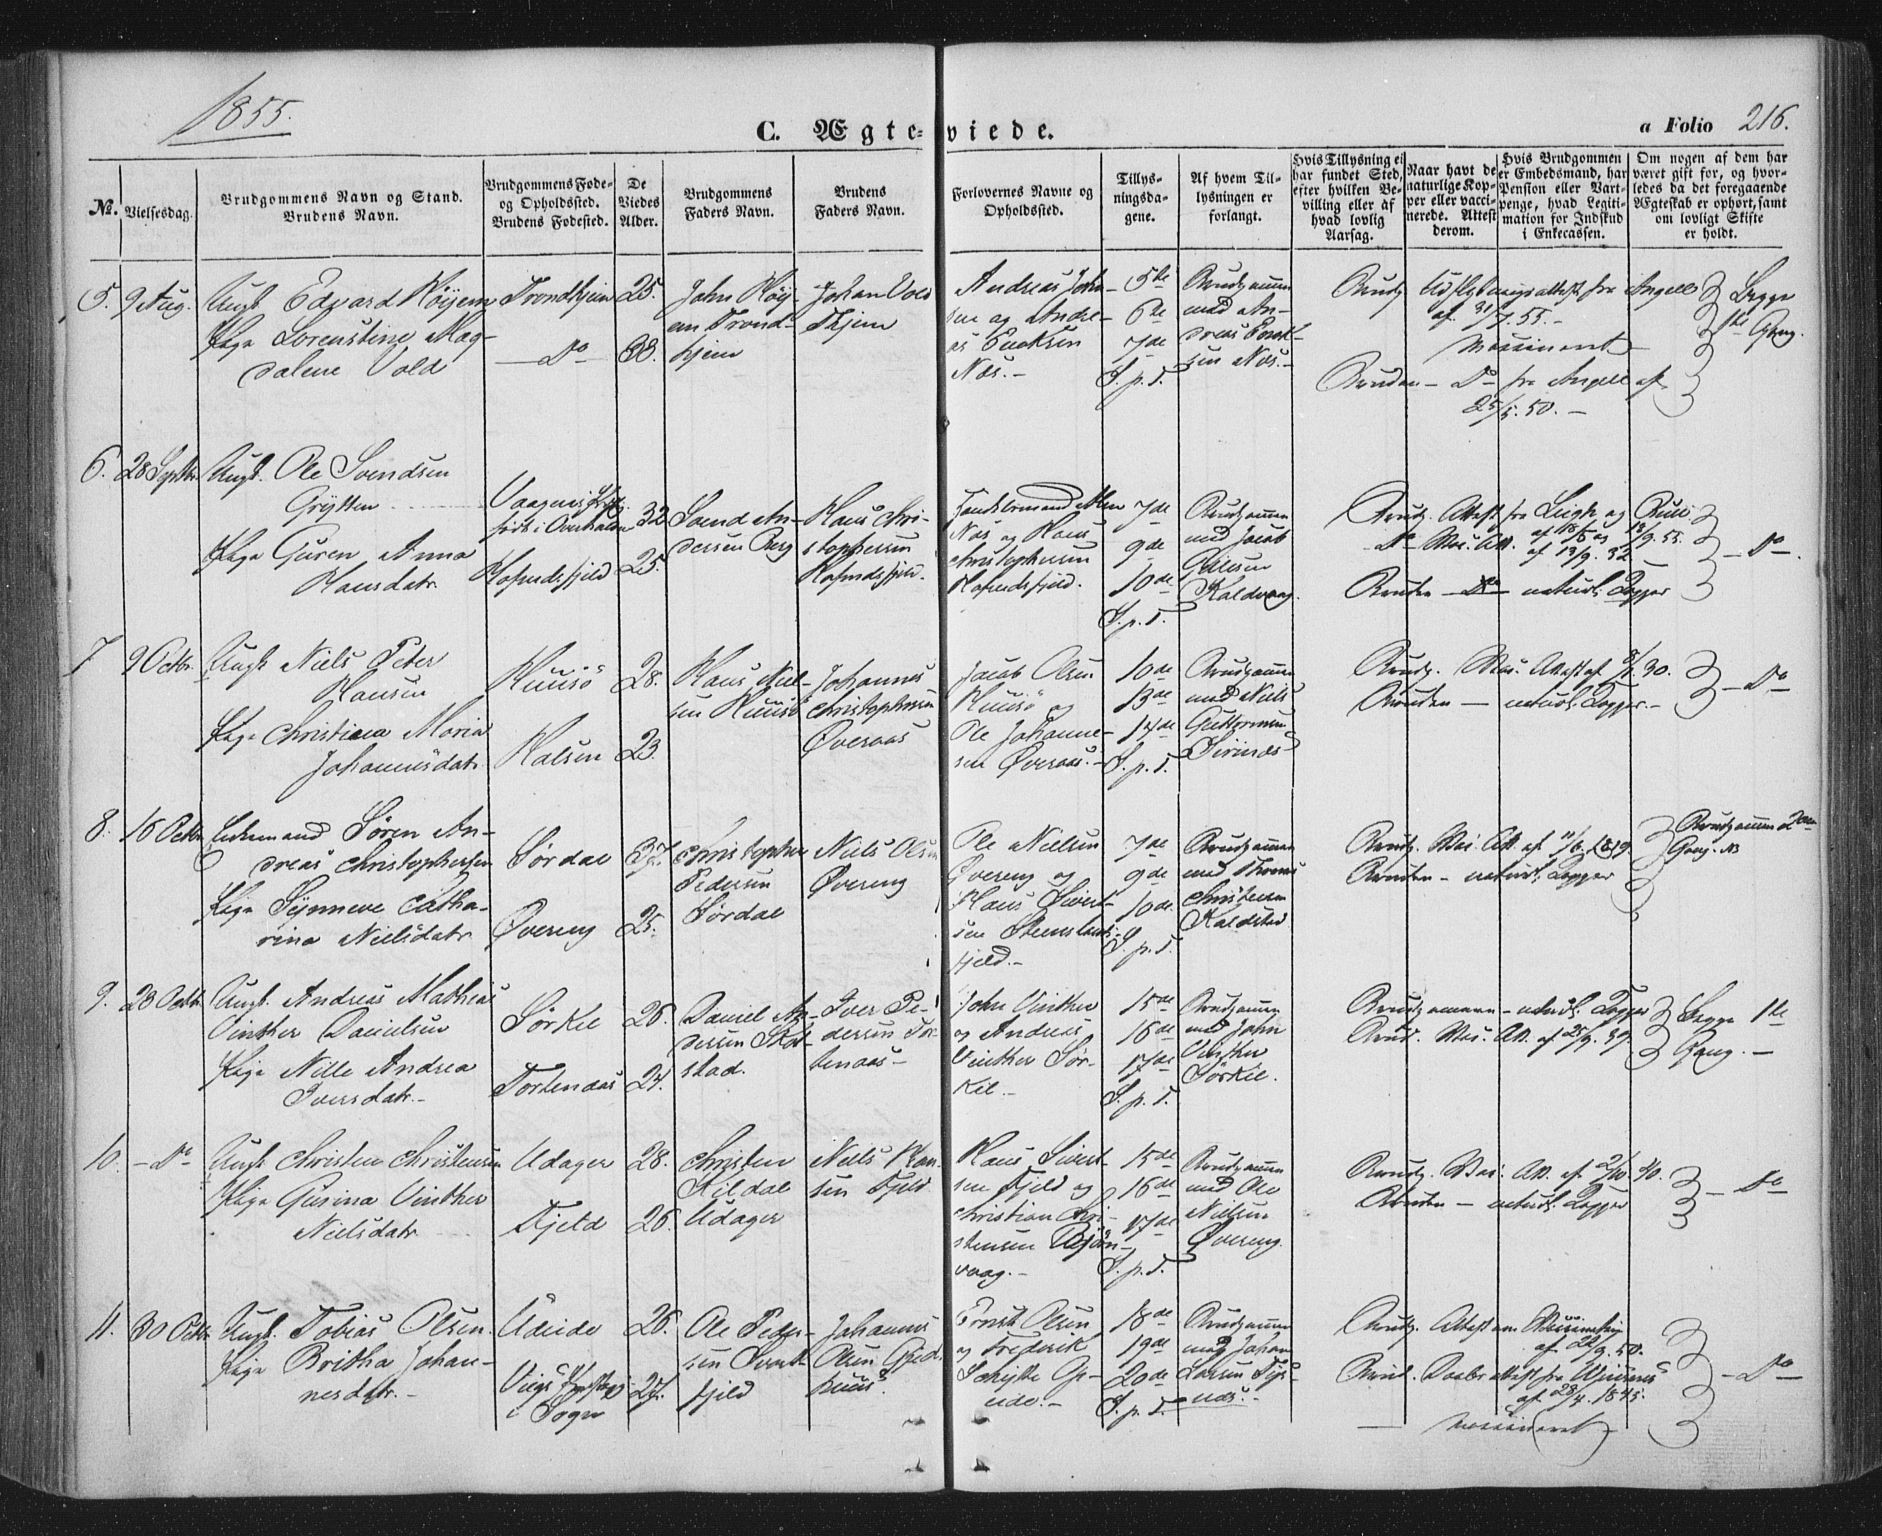 1855.
C. Ægteviede.
a Folio 216.
No.
Vielsesdag.
Brudgommens Navn og Stand.
Brudens Navn.
Brudgommens Føde-
og Opholdssted.
Brudens Fødested.
De
Viedes
Alder.
Brudgommens
Faders Navn.
Brudens
Faders Navn.
Forlovernes Navne og
Opholdssted.
Tillys-
ningsda-
gene.
Af hvem Til-
lysningen er
forlangt.
Hvis Tillysning ei
har fundet Sted,
efter hvilken Be-
villing eller af
hvad lovlig
Aarsag.
Naar havt de
naturlige Kop-
per eller vacci-
nerede. Attest
derom.
Hvis Brudgommen
er Embedsmand, har
Pension eller Vart-
penge, hvad Legiti-
mation for Indskud
i Enkecassen.
Om nogen af dem har
været gift for, og hvor-
ledes da det foregaaende
Ægteskab er ophørt, samt
om lovligt Skifte
er holdt.
5. 9 Aug.
Ungk. Edvard Høyem
Pige Lorenstine Mag-
dalene Vold
Trondhjem
Do
25.
38.
John Høy-
em Trond-
hjem
Johan Vold
Thjem
Andreas John-
sen og Andre-
as Eriksen
Næs.
5te
6te
7de
S. p. T.
Brudgommen
med An-
dreas Erik-
sen Næs.
Brudg.
fra Angell
af 31/7. 55.
Vaccineret
Bruden - Do fra Angell af
25/5. 50.
Begge
1ste Gang.
6. 28 Septbr.
Ungk. Ole Svendsen
Grytten
Pige Guren Anna
Hansdatr.
i Overhalden
32
25.
Svend An-
dersen Berg
Hans Chri-
stophersen
Næs og Hans
Christophersen
7de
9de
10de
S. p. T.
Brudgommen
med Jacob
Kaldvaag.
Brudg. Attest fra
Do Vac. Att. af 13/9. 32
Bruden naturl. Kopper
Do
7 9 Octbr.
Ungk. Niels Peter
Hansen
Pige Christina Maria
Johannesdatr.
Huusö
Halsen
28.
23.
Hans Niel-
sen Huusö
Johannes
Christophersen
Øveraas
Jacob Olsen
Huusö og
Ole Johanne-
sen Øveraas.
10de
13de
14de
S. p. T.
Brudgommen
med Niels
Guttormsen
Brudg. Vac. Attest af 30.
Bruden - naturl. Kopper.
Do
8. 16 Octbr.
Enkemand Sören An-
dreas Christophersen
Pige Synneve Catha-
rina Nielsdatr.
Sørdal
Øvereng
37.
25.
Christopher
Pedersen
Sørdal
Niels Olsen
Øvereng
Ole Nielsen
Øvereng og
Hans Sivert-
sen
fjeld.
7de
9de
10de
S. p. T.
Brudgommen
med Thomas
Christensen
Brudg. Vac. Att. af 11/6. 1819
Bruden - naturl. Kopper
Brudgommen 2den
Gang.
9. 23 Octbr.
Ungk. Andreas Mathias
Vinther Danielsen
Pige Nille Andrea
Iversdatr.
Sørkil
Tortenaas
26.
24.
Daniel An-
dersen Skot-
stad.
Iver Pe-
dersen Tor-
tenaas
John Vinther
og Andreas
Vinther Sør-
kil.
15de
16de
17de
S. p. T.
Brudgommen
med John
Vinther
Sørkil.
Brudgommen - naturl. Kopper
Brud. Vac. Att. af 25/9. 39.
Begge 1te
Gang.
10. Do
Ungk. Christen Christensen
Pige Gurina Vinther
Nielsdatr.
Udager
Fjeld
28.
26.
Christen
Kildal
Udager
Niels Han-
sen Fjeld
Hans Sivert-
sen Fjeld og
Christian Chri-
stensen Bjørn-
vaag.
15de
16de
17de
S. p. T.
Brudgommen
med Ole
Nielsen
Øvereng.
Brudg. Vac. Att. af 2/10. 40.
Bruden - naturl. Kopper
Do
11. 30 Octbr.
Ungk. Tobias Olsen
Pige Britha Johan-
nesdatr.
i Sogn
26.
27.
Ole Peder-
sen
fjeld
Johannes
Olsen
Ernst Olsen
og Frederik
Schytte
18de
19de
20de
S. p. T.
Brudgommen
med Johan
Larsen
Brudg. Attest om Vaccination
af 22/9. 50.
Brud. Daabsattest fra
af 28/4. 1845.
vaccineret
Do